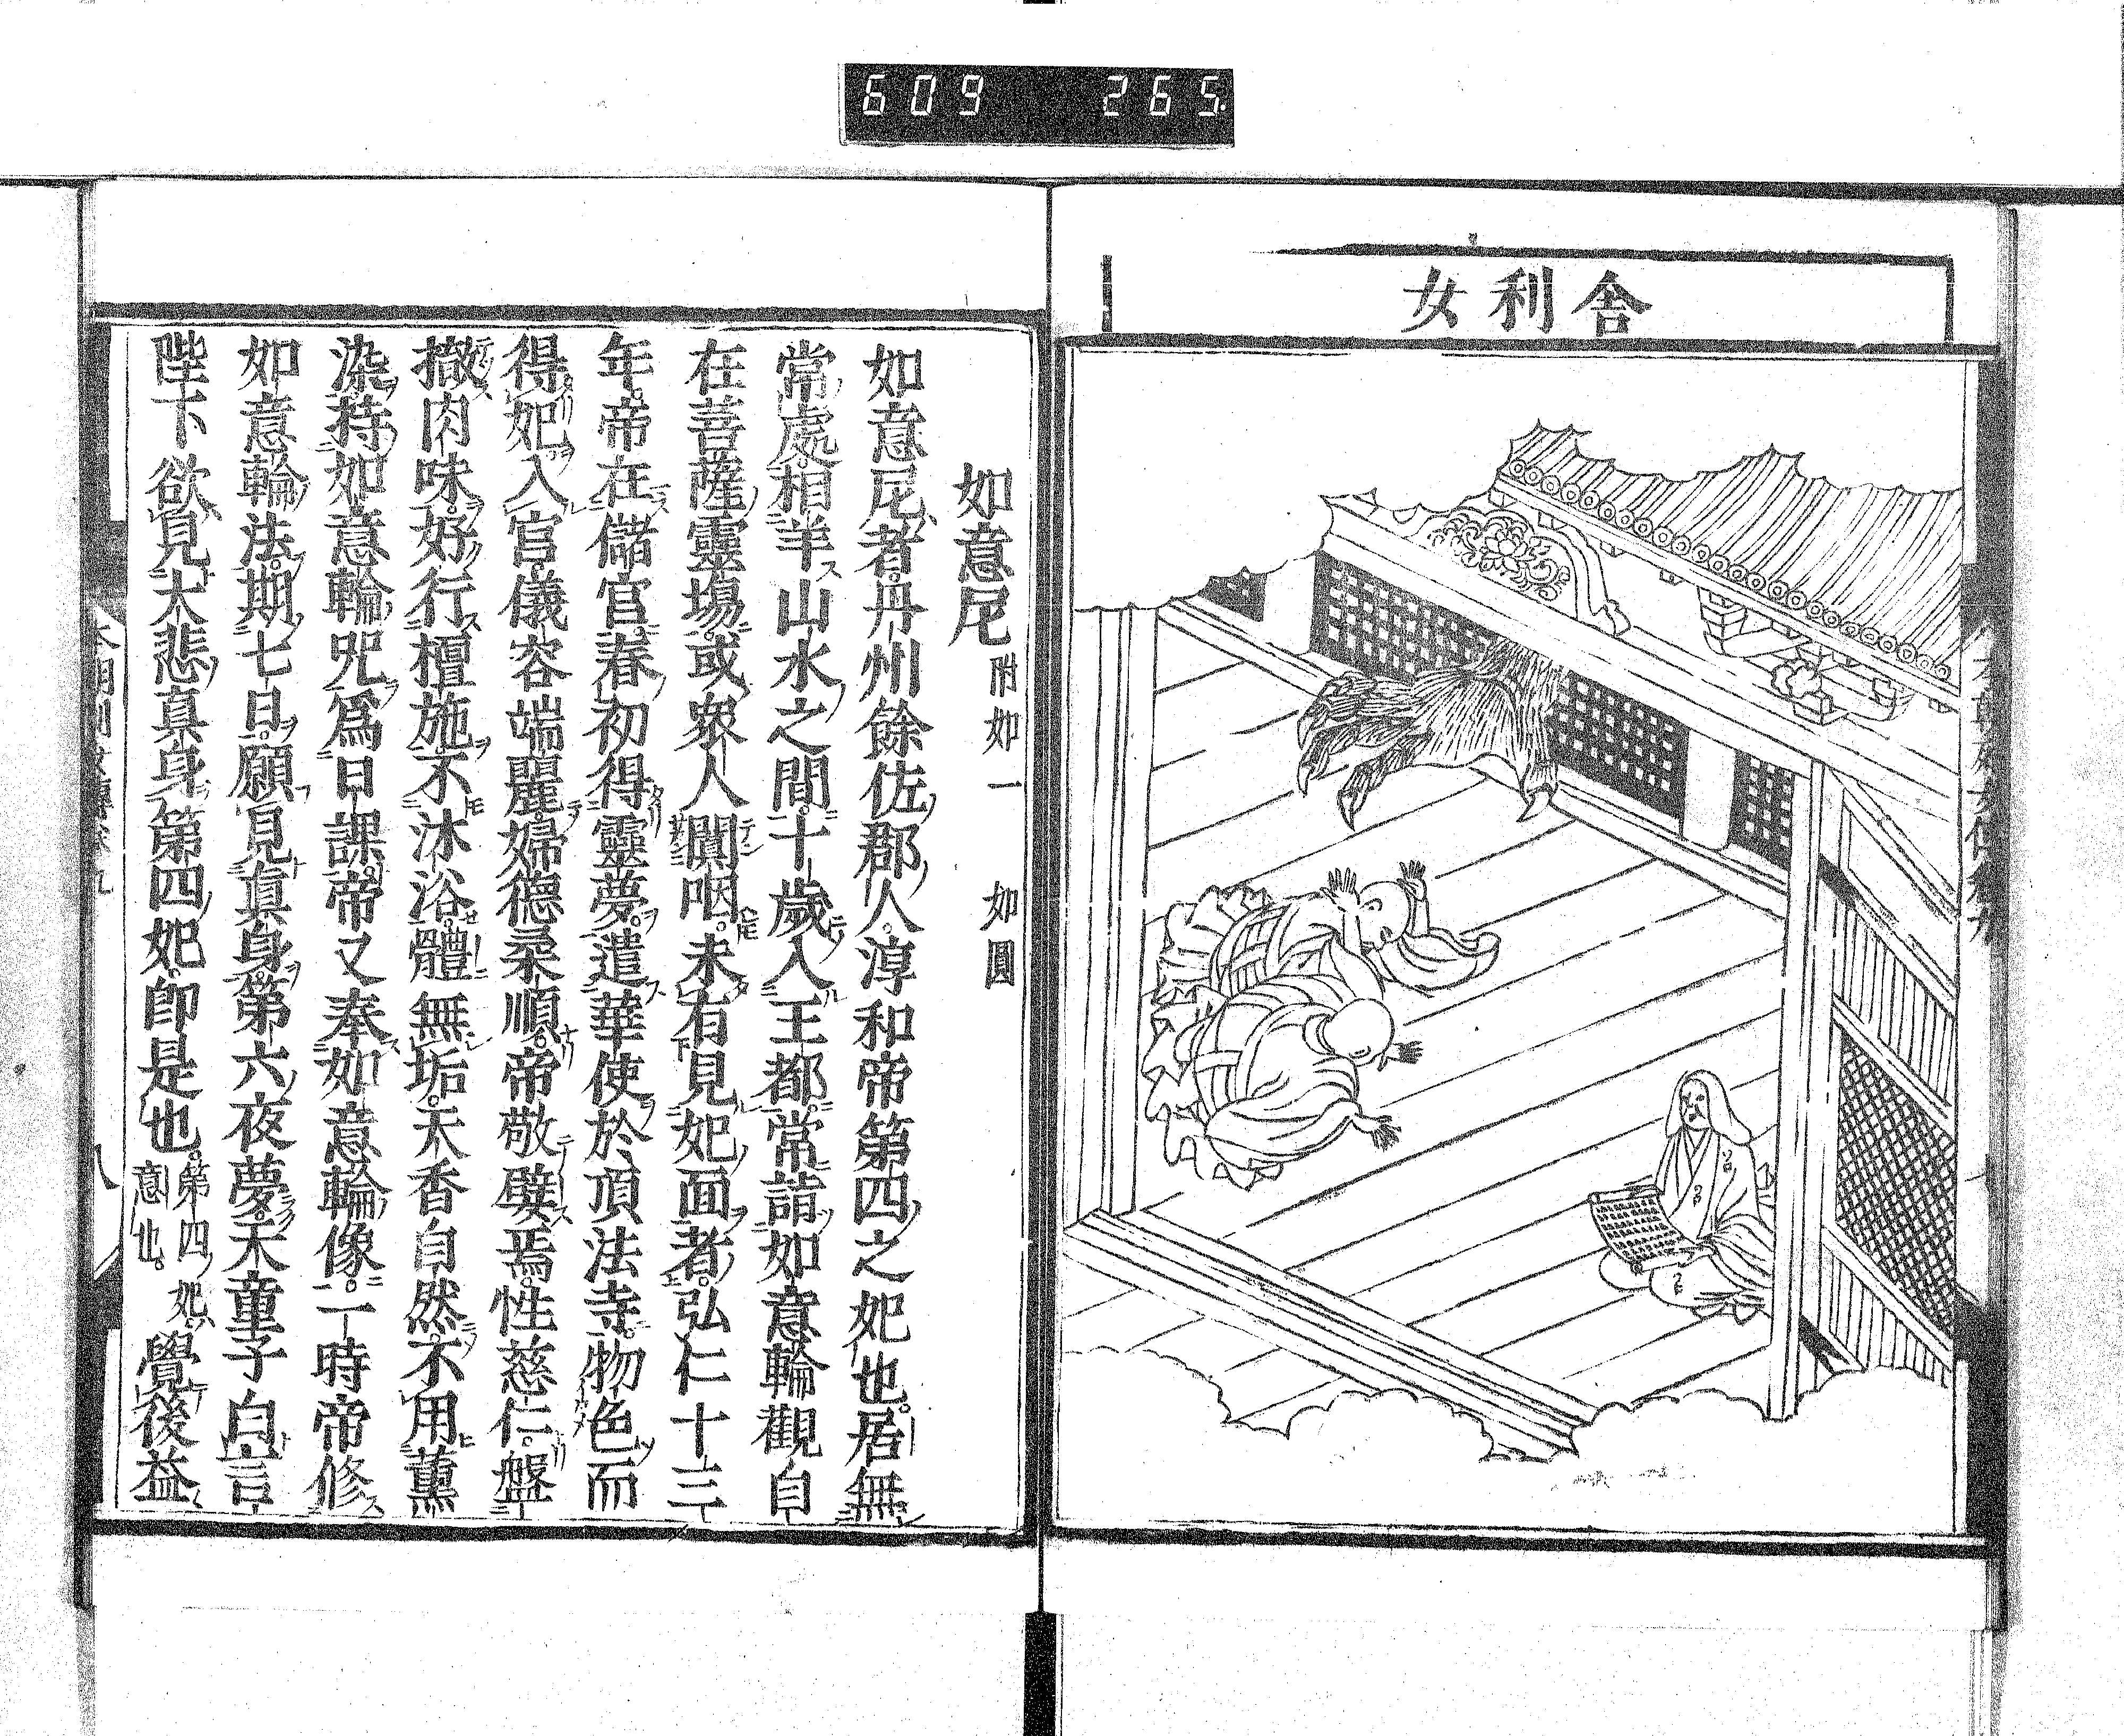 609 265
舎利女
如意尼 附如一 如圓
如意尼者丹州餘佐郡人。淳和帝第四之妃也。居無
常處。相羊山水之間。十歲入王都。常詣如意輪觀自
在菩薩靈場。或衆人闐咽。未有見妃面者。弘仁十三
年。帝在儲宮。春初得靈夢。遣華使於頂法寺。物色而
得妃入宮。儀容端麗。婦德柔順。帝敬嬖焉。性慈仁。盤
撤肉味。好行檀施。不沐浴。體無垢。天香自然。不用薰
染。持如意輪咒。爲日課。帝又奉如意輪像。一時帝修
如意輪法。期七日。願見真身。第六夜夢。天童子白言
陛下欲見大悲真身。第四妃。即是也。第四妃。意也。覺後益